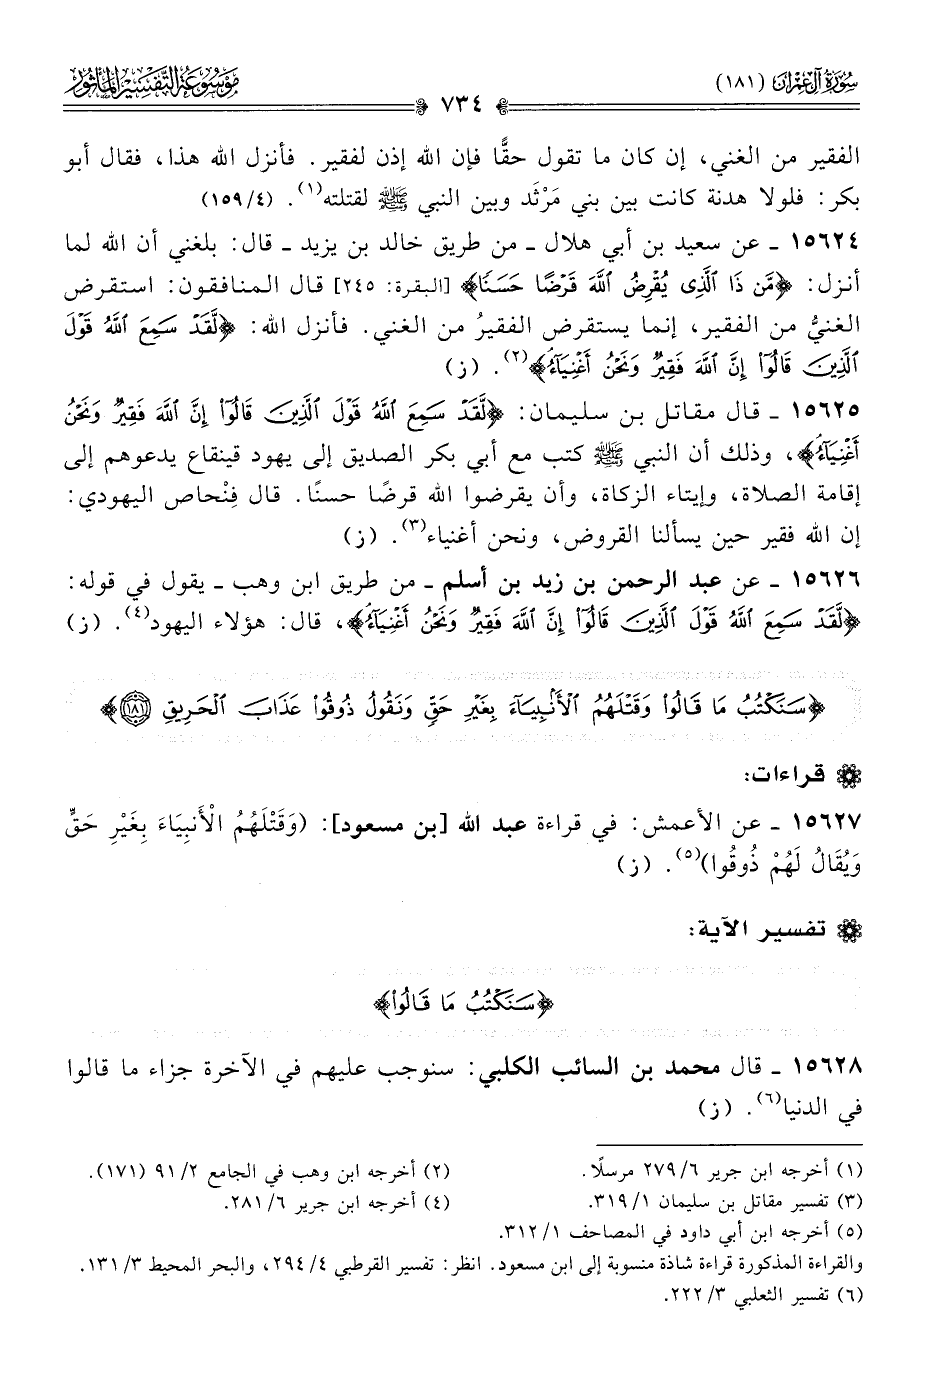 سُورَةُ آلِ عِمْرَانَ (١٨١)
٧٣٤
مَوْسُوعَةُ التَّفْسِيرِ المَأْثُورِ
الفقير من الغني، إن كان ما تقول حقًّا فإن الله إذن لفقير. فأنزل الله هذا، فقال أبو
بكر: فلولا هدنة كانت بين بني مَرْثَد وبين النبي ﷺ لقتلته(١). (١٥٩/٤)
١٥٦٢٤ ـ عن سعيد بن أبي هلال ـ من طريق خالد بن يزيد ـ قال: بلغني أن الله لما
أنزل: ﴿مَّن ذَا ٱلَّذِى يُقْرِضُ ٱللَّهَ قَرْضًا حَسَنًا﴾ [البقرة: ٢٤٥] قال المنافقون: استقرض
الغنيُّ من الفقير، إنما يستقرض الفقيرُ من الغني. فأنزل الله: ﴿لَّقَدْ سَمِعَ ٱللَّهُ قَوْلَ
ٱلَّذِينَ قَالُوٓا۟ إِنَّ ٱللَّهَ فَقِيرٌ وَنَحْنُ أَغْنِيَآءُ﴾(٢). (ز)
١٥٦٢٥ ـ قال مقاتل بن سليمان: ﴿لَّقَدْ سَمِعَ ٱللَّهُ قَوْلَ ٱلَّذِينَ قَالُوٓا۟ إِنَّ ٱللَّهَ فَقِيرٌ وَنَحْنُ
أَغْنِيَآءُ﴾، وذلك أن النبي ﷺ كتب مع أبي بكر الصديق إلى يهود قينقاع يدعوهم إلى
إقامة الصلاة، وإيتاء الزكاة، وأن يقرضوا الله قرضًا حسنًا. قال فِنْحاص اليهودي:
إن الله فقير حين يسألنا القروض، ونحن أغنياء(٣). (ز)
١٥٦٢٦ ـ عن عبد الرحمن بن زيد بن أسلم ـ من طريق ابن وهب ـ يقول في قوله:
﴿لَّقَدْ سَمِعَ ٱللَّهُ قَوْلَ ٱلَّذِينَ قَالُوٓا۟ إِنَّ ٱللَّهَ فَقِيرٌ وَنَحْنُ أَغْنِيَآءُ﴾، قال: هؤلاء اليهود(٤). (ز)
﴿سَنَكْتُبُ مَا قَالُوا۟ وَقَتْلَهُمُ ٱلْأَنۢبِيَآءَ بِغَيْرِ حَقٍّ وَنَقُولُ ذُوقُوا۟ عَذَابَ ٱلْحَرِيقِ ١٨١﴾
قراءات:
١٥٦٢٧ ـ عن الأعمش: في قراءة عبد الله [بن مسعود]: (وَقَتْلَهُمُ الْأَنبِيَاءَ بِغَيْرِ حَقٍّ
وَيُقَالُ لَهُمْ ذُوقُوا)(٥). (ز)
تفسير الآية:
﴿سَنَكْتُبُ مَا قَالُوا۟﴾
١٥٦٢٨ ـ قال محمد بن السائب الكلبي: سنوجب عليهم في الآخرة جزاء ما قالوا
في الدنيا(٦). (ز)
(١) أخرجه ابن جرير ٦/ ٢٧٩ مرسلًا.
(٢) أخرجه ابن وهب في الجامع ٢/ ٩١ (١٧١).
(٣) تفسير مقاتل بن سليمان ١/ ٣١٩.
(٤) أخرجه ابن جرير ٦/ ٢٨١.
(٥) أخرجه ابن أبي داود في المصاحف ١/ ٣١٢.
والقراءة المذكورة قراءة شاذة منسوبة إلى ابن مسعود. انظر: تفسير القرطبي ٤/ ٢٩٤، والبحر المحيط ٣/ ١٣١.
(٦) تفسير الثعلبي ٣/ ٢٢٢.